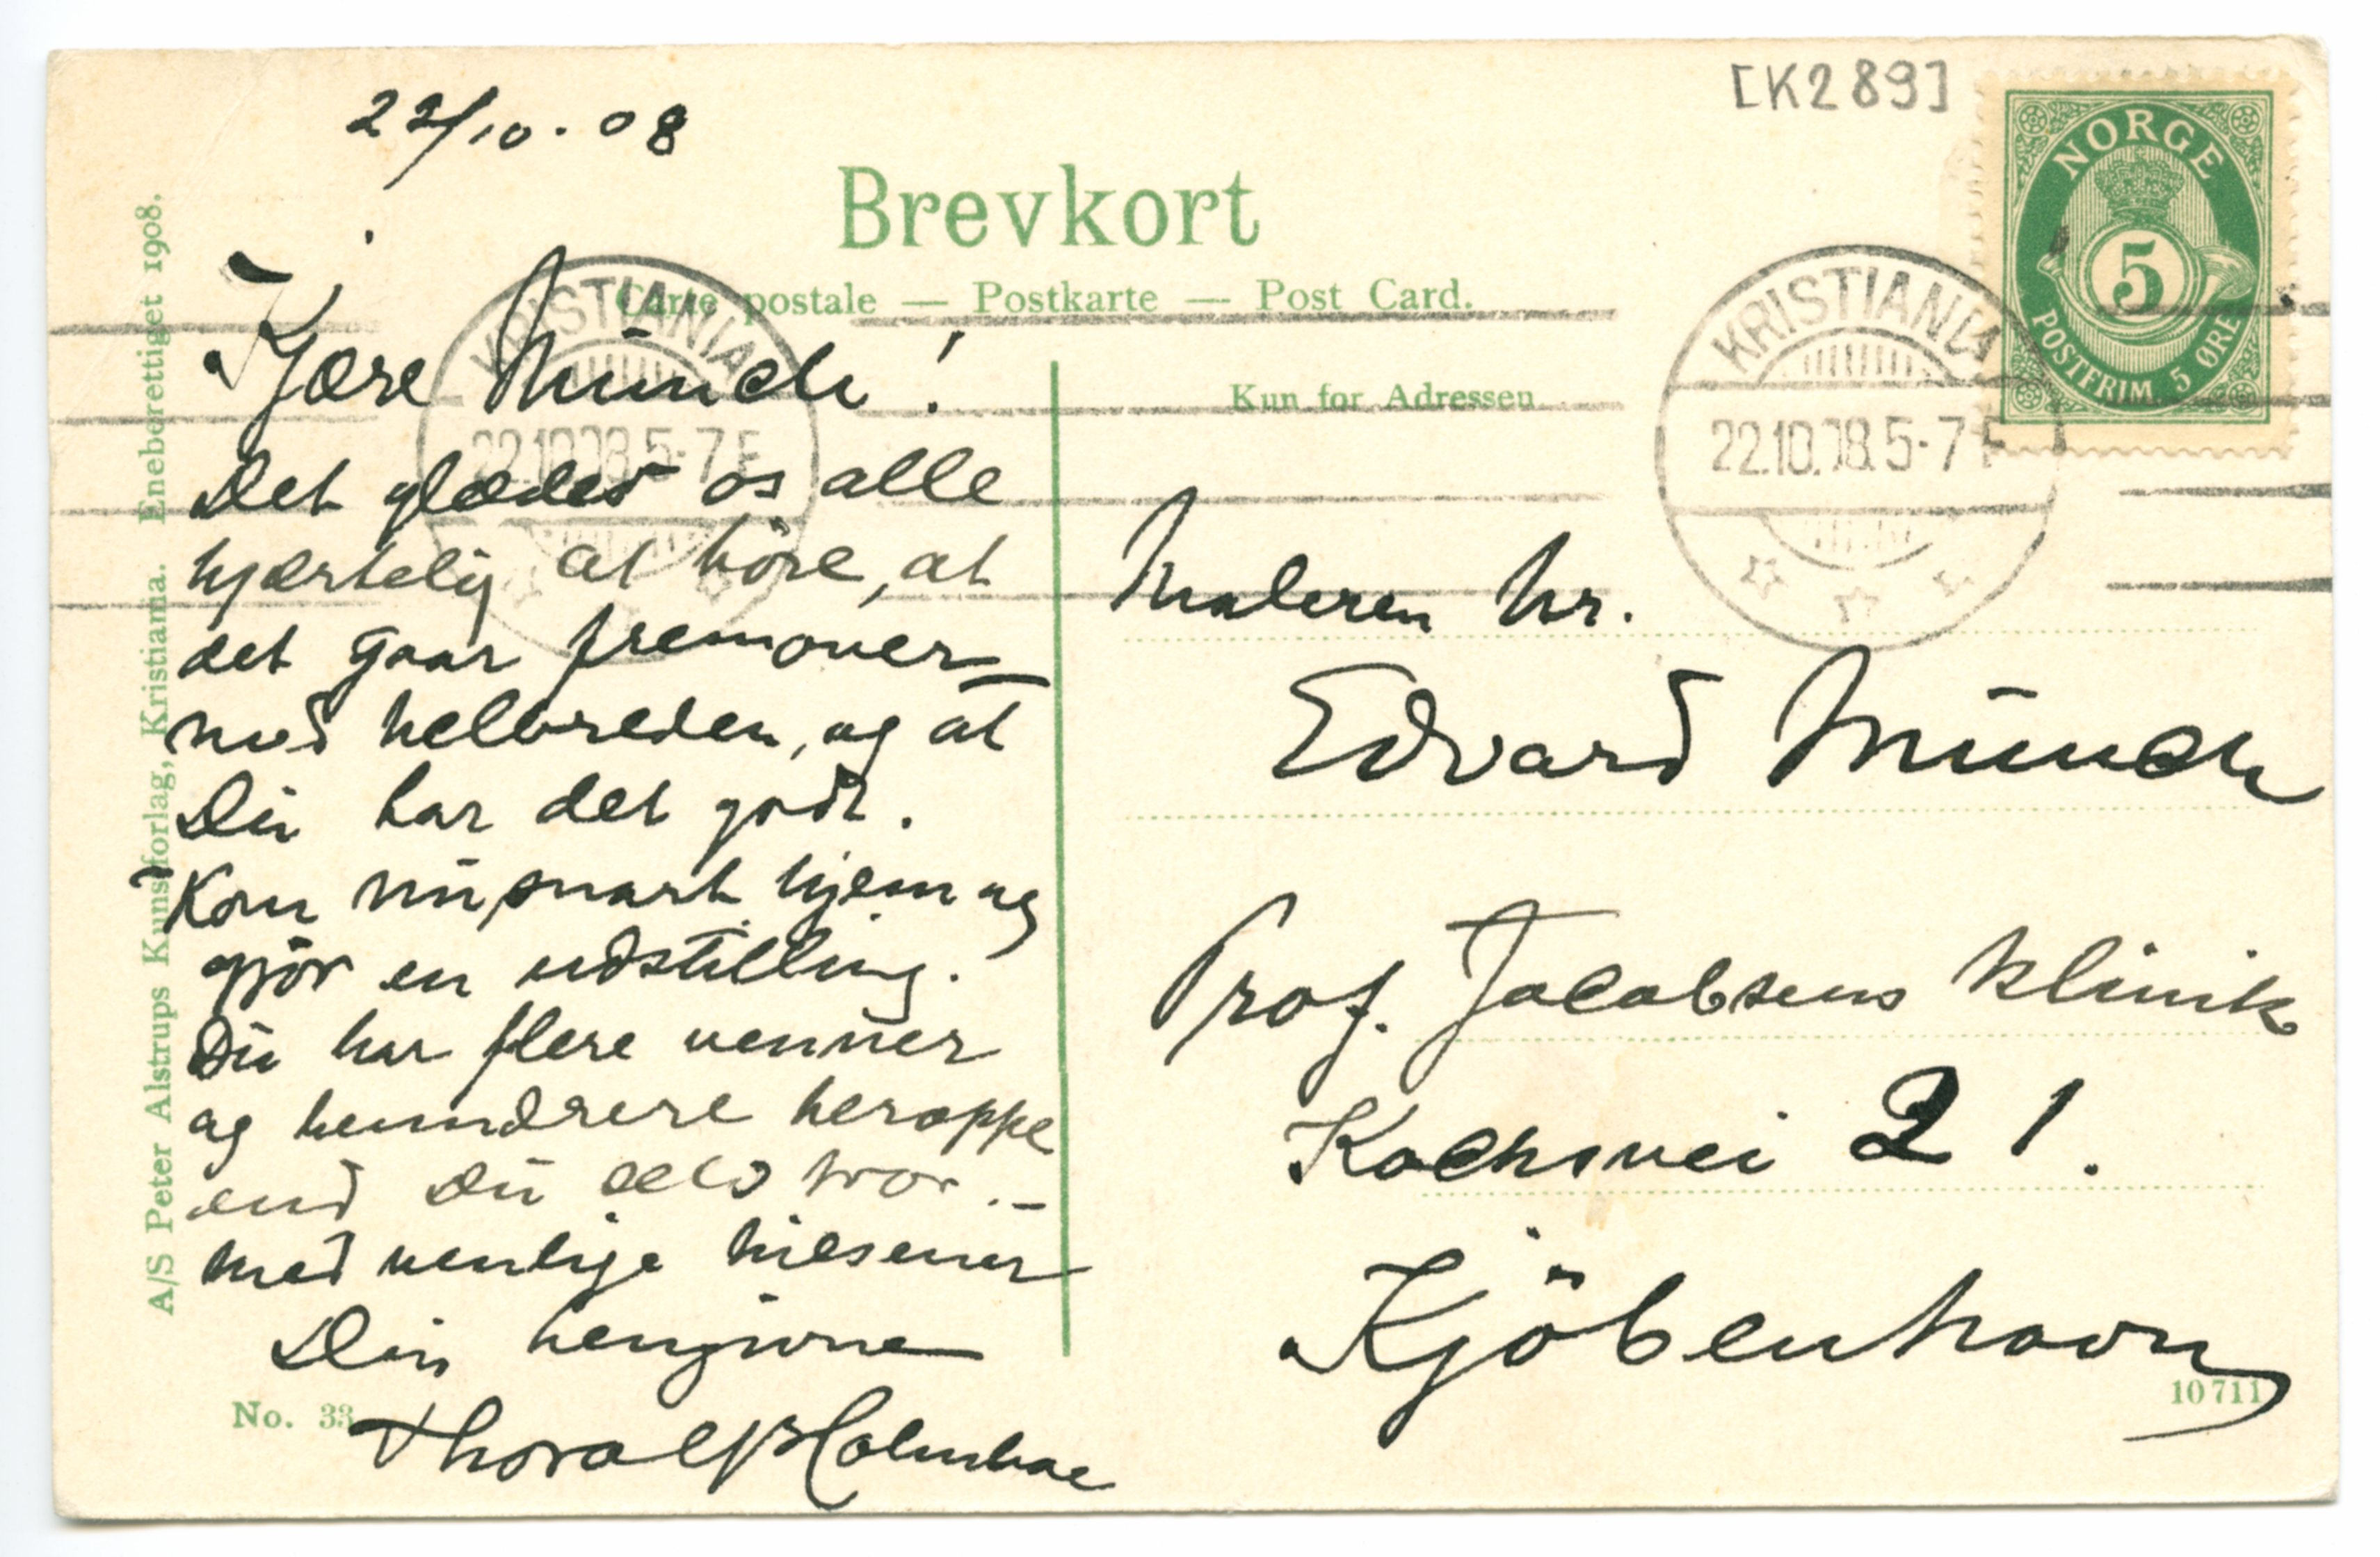 22/10.08
[K289]
NORGE
5
POSTFRIM. 5 ØRE
Brevkort
Carte postale — Postkarte — Post Card.
KRISTIANIA
22.10.08.5-7 E
KRISTIANIA
22.10.08.5-7 E
Kun for Adressen
Kjære Münch!
Det glæder os alle
hjærtelig at höre, at
det gaar fremover
med helbreden, og at
Dü har det godt.
Kom nü snart hjem og
gjör en udstilling.
Dü har flere venner
og beundrere heroppe
end Dü selv tror. –
Med venlige hilsener
Din hengivne
Thoralf Holmboe
Maleren hr.
Edvard Münch
Prof. Jacobsens klinik
Kochsvei 21.
Kjöbenhavn
A/S Peter Alstrups Kunstforlag, Kristiania. Eneberettiget 1908.
No. 33
10711